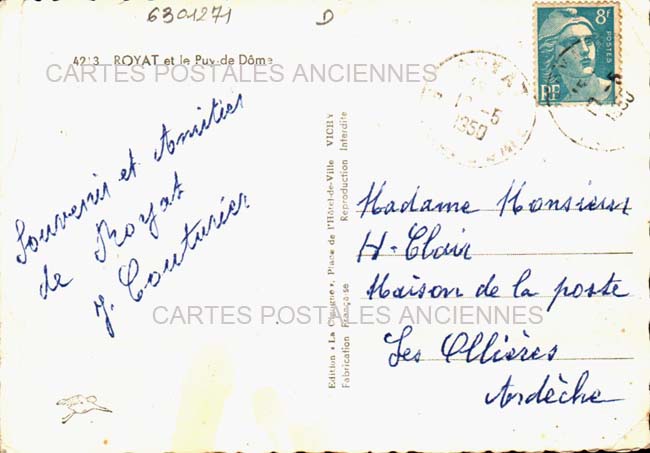 6301271 D
4213 ROYAT et le Puy-de Dôme
CARTES POSTALES ANCIENNES
8f
POSTES
RF
1950
-5
1950
Souvenir et Amitiés
de Royat
J. Couturier
Edition « La Cigogne », Place de l'Hôtel-de-Ville VICHY
Fabrication Française Reproduction Interdite
Madame Monsieur
H-Clair
Maison de la poste
Les Ollières
Ardèche
CARTES POSTALES ANCIENNES